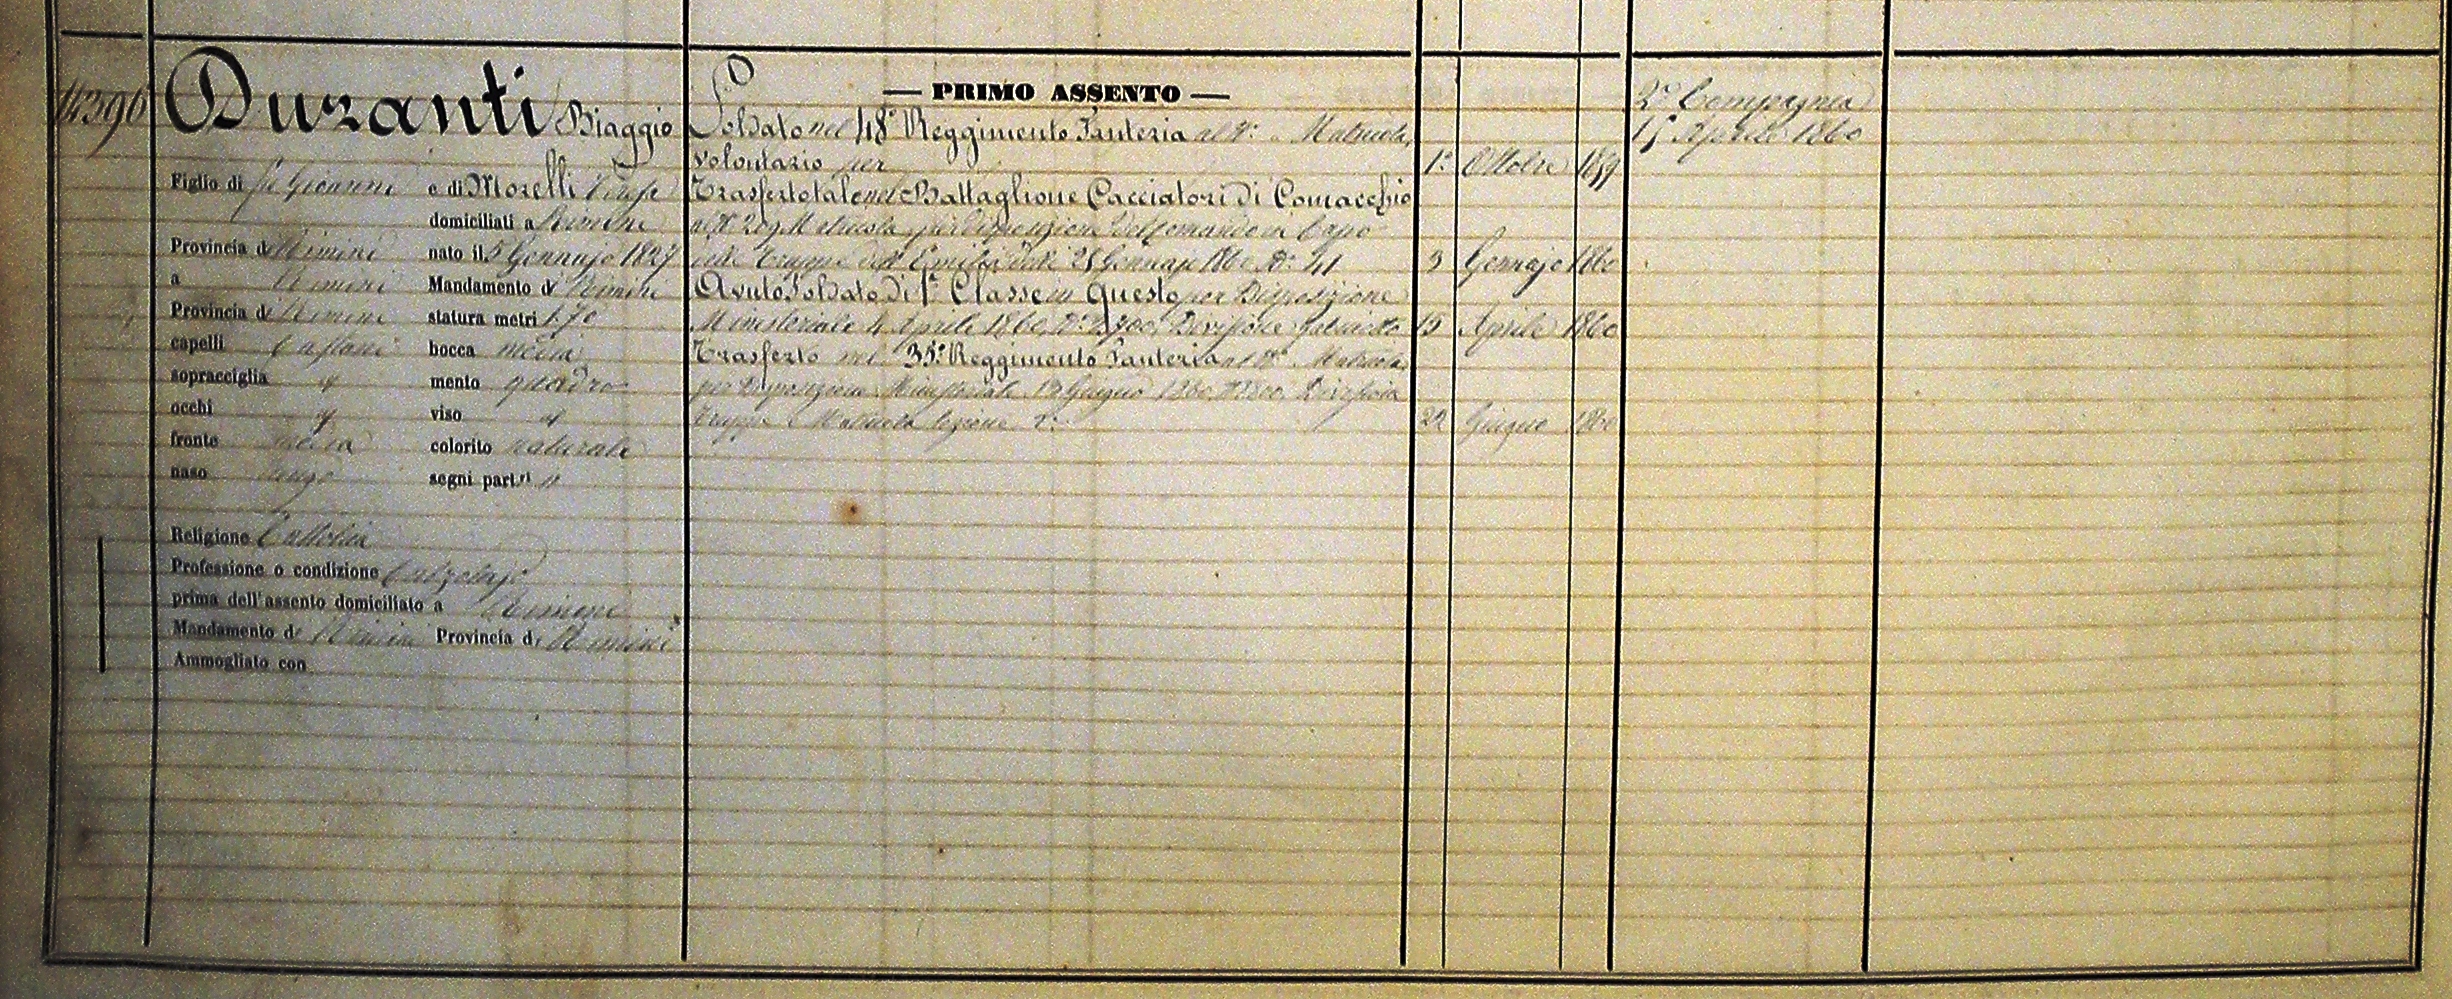 14390
Duranti Biaggio
Figlio di fu Giovanni e di Morelli
domiciliati a Rimini
Provincia di Rimini nato il 5 Gennajo 1827
a Rimini Mandamento di Rimini
Provincia di Rimini statura metri 1.70
capelli Castani bocca media
sopracciglia id mento quadro
occhi id viso id
fronte media colorito naturale
naso lungo segni part.ri //
Religione Cattolica
Professione o condizione Calzolajo
prima dell'assento domiciliato a Rimini
Mandamento di Rimini Provincia di Rimini
Ammogliato con
— PRIMO ASSENTO —
Soldato nel 48° Reggimento Fanteria al N° Matricola,
volontario per 1° Ottobre 1859
Trasferto tale nel Battaglione Cacciatori di Comacchio
al N° 209 Matricola per disposizione del Comando in Capo
delle Truppe dell'Emilia delli 25 Gennajo 1860 N° 41 3 Gennajo 1860
Avuto Soldato di 1ª Classe in Questo per Disposizione
Ministeriale 4 Aprile 1860 N° Divisione Gabinetto 15 Aprile 1860
Trasferto nel 35° Reggimento Fanteria al N° Matricola
per Disposizione Ministeriale 13 Giugno 1860 Divisione
Truppe Matricola Sezione 2ª 22 Giugno 1860
2ª Compagnia
15 Aprile 1860